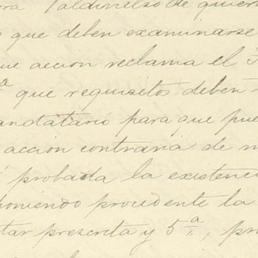 Valdivieso de quien
que deben examinarse
que accion reclama el
que requisitos deben
mandatario para que pue
accion contraria de
probada la existenc
poniendo procedente la
tar prescreta y 5ª, pr